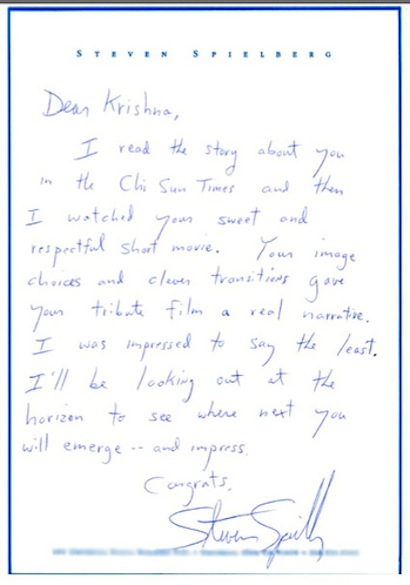 STEVEN SPIELBERG
Dear Krishna,
I read the story about you
in the Chi Sun Times and then
I watched your sweet and
respectful short movie. Your image
choices and clever transitions gave
your tribute film a real narrative.
I was impressed to say the least.
I'll be looking out at the
horizon to see where next you
will emerge -- and impress.
Congrats,
Steven Spielberg